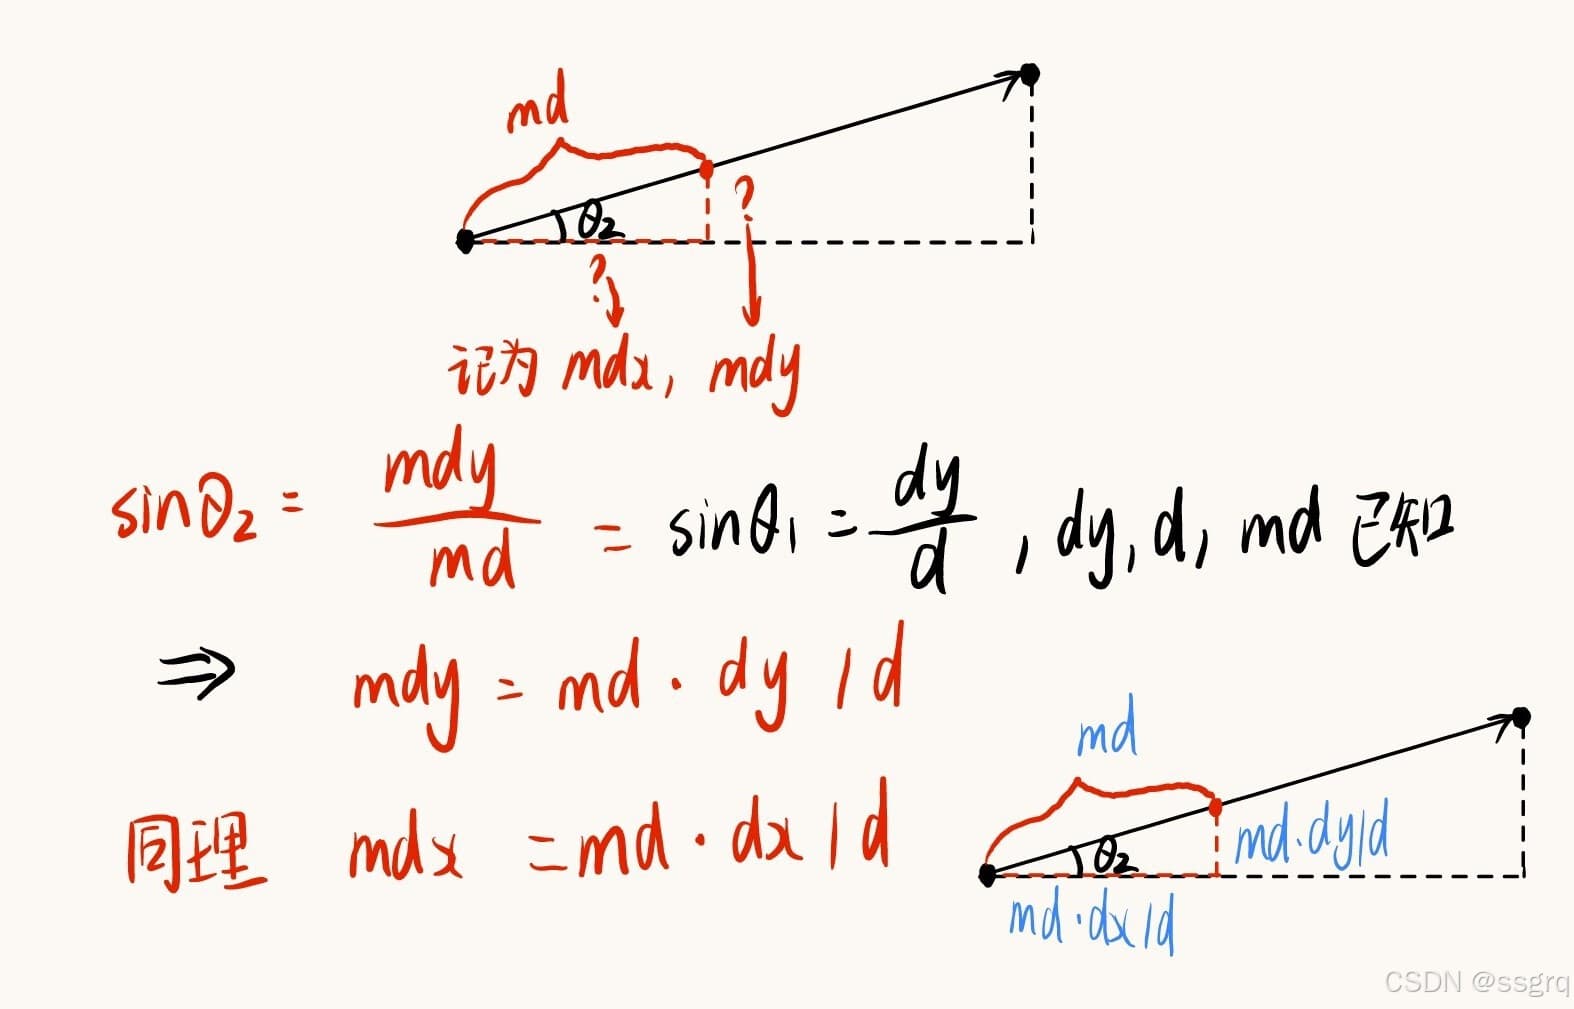 md
θ₂
?
?
记为 mdx, mdy
sinθ₂ = mdy/md = sinθ₁ = dy/d , dy, d, md 已知
⇒ mdy = md · dy / d
md
同理 mdx = md · dx / d
θ₂
md·dy/d
md·dx/d
CSDN @ssgrq